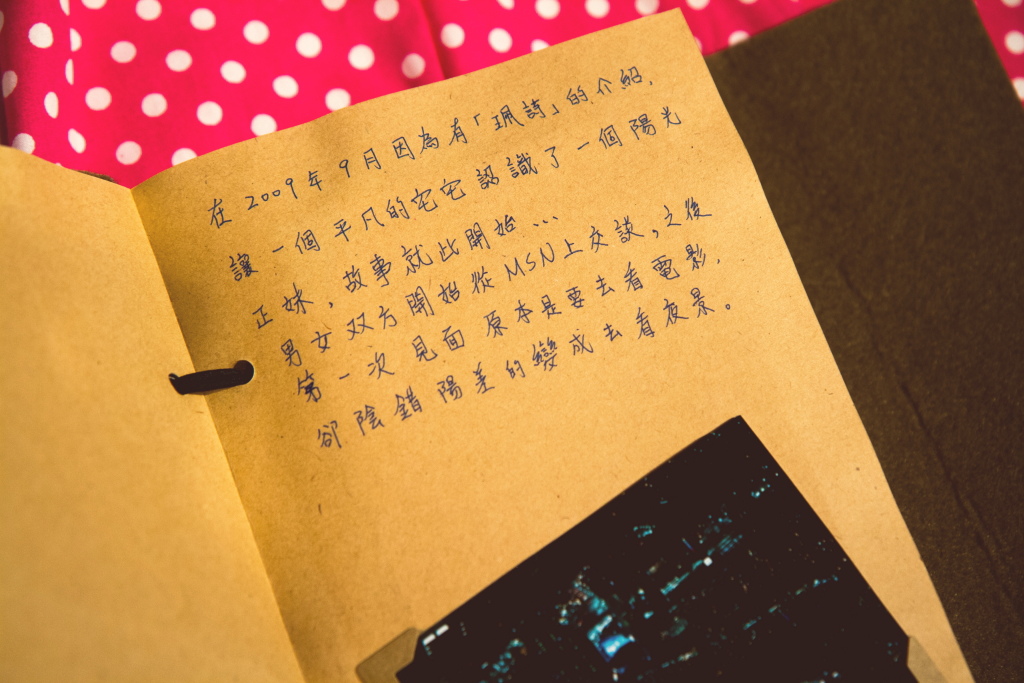 在2009年9月因為有「珮詩」的介紹,
讓一個平凡的宅宅認識了一個陽光
正妹,故事就此開始...
男女双方開始從MSN上交談,之後
第一次見面原本是要去看電影,
卻陰錯陽差的變成去看夜景。